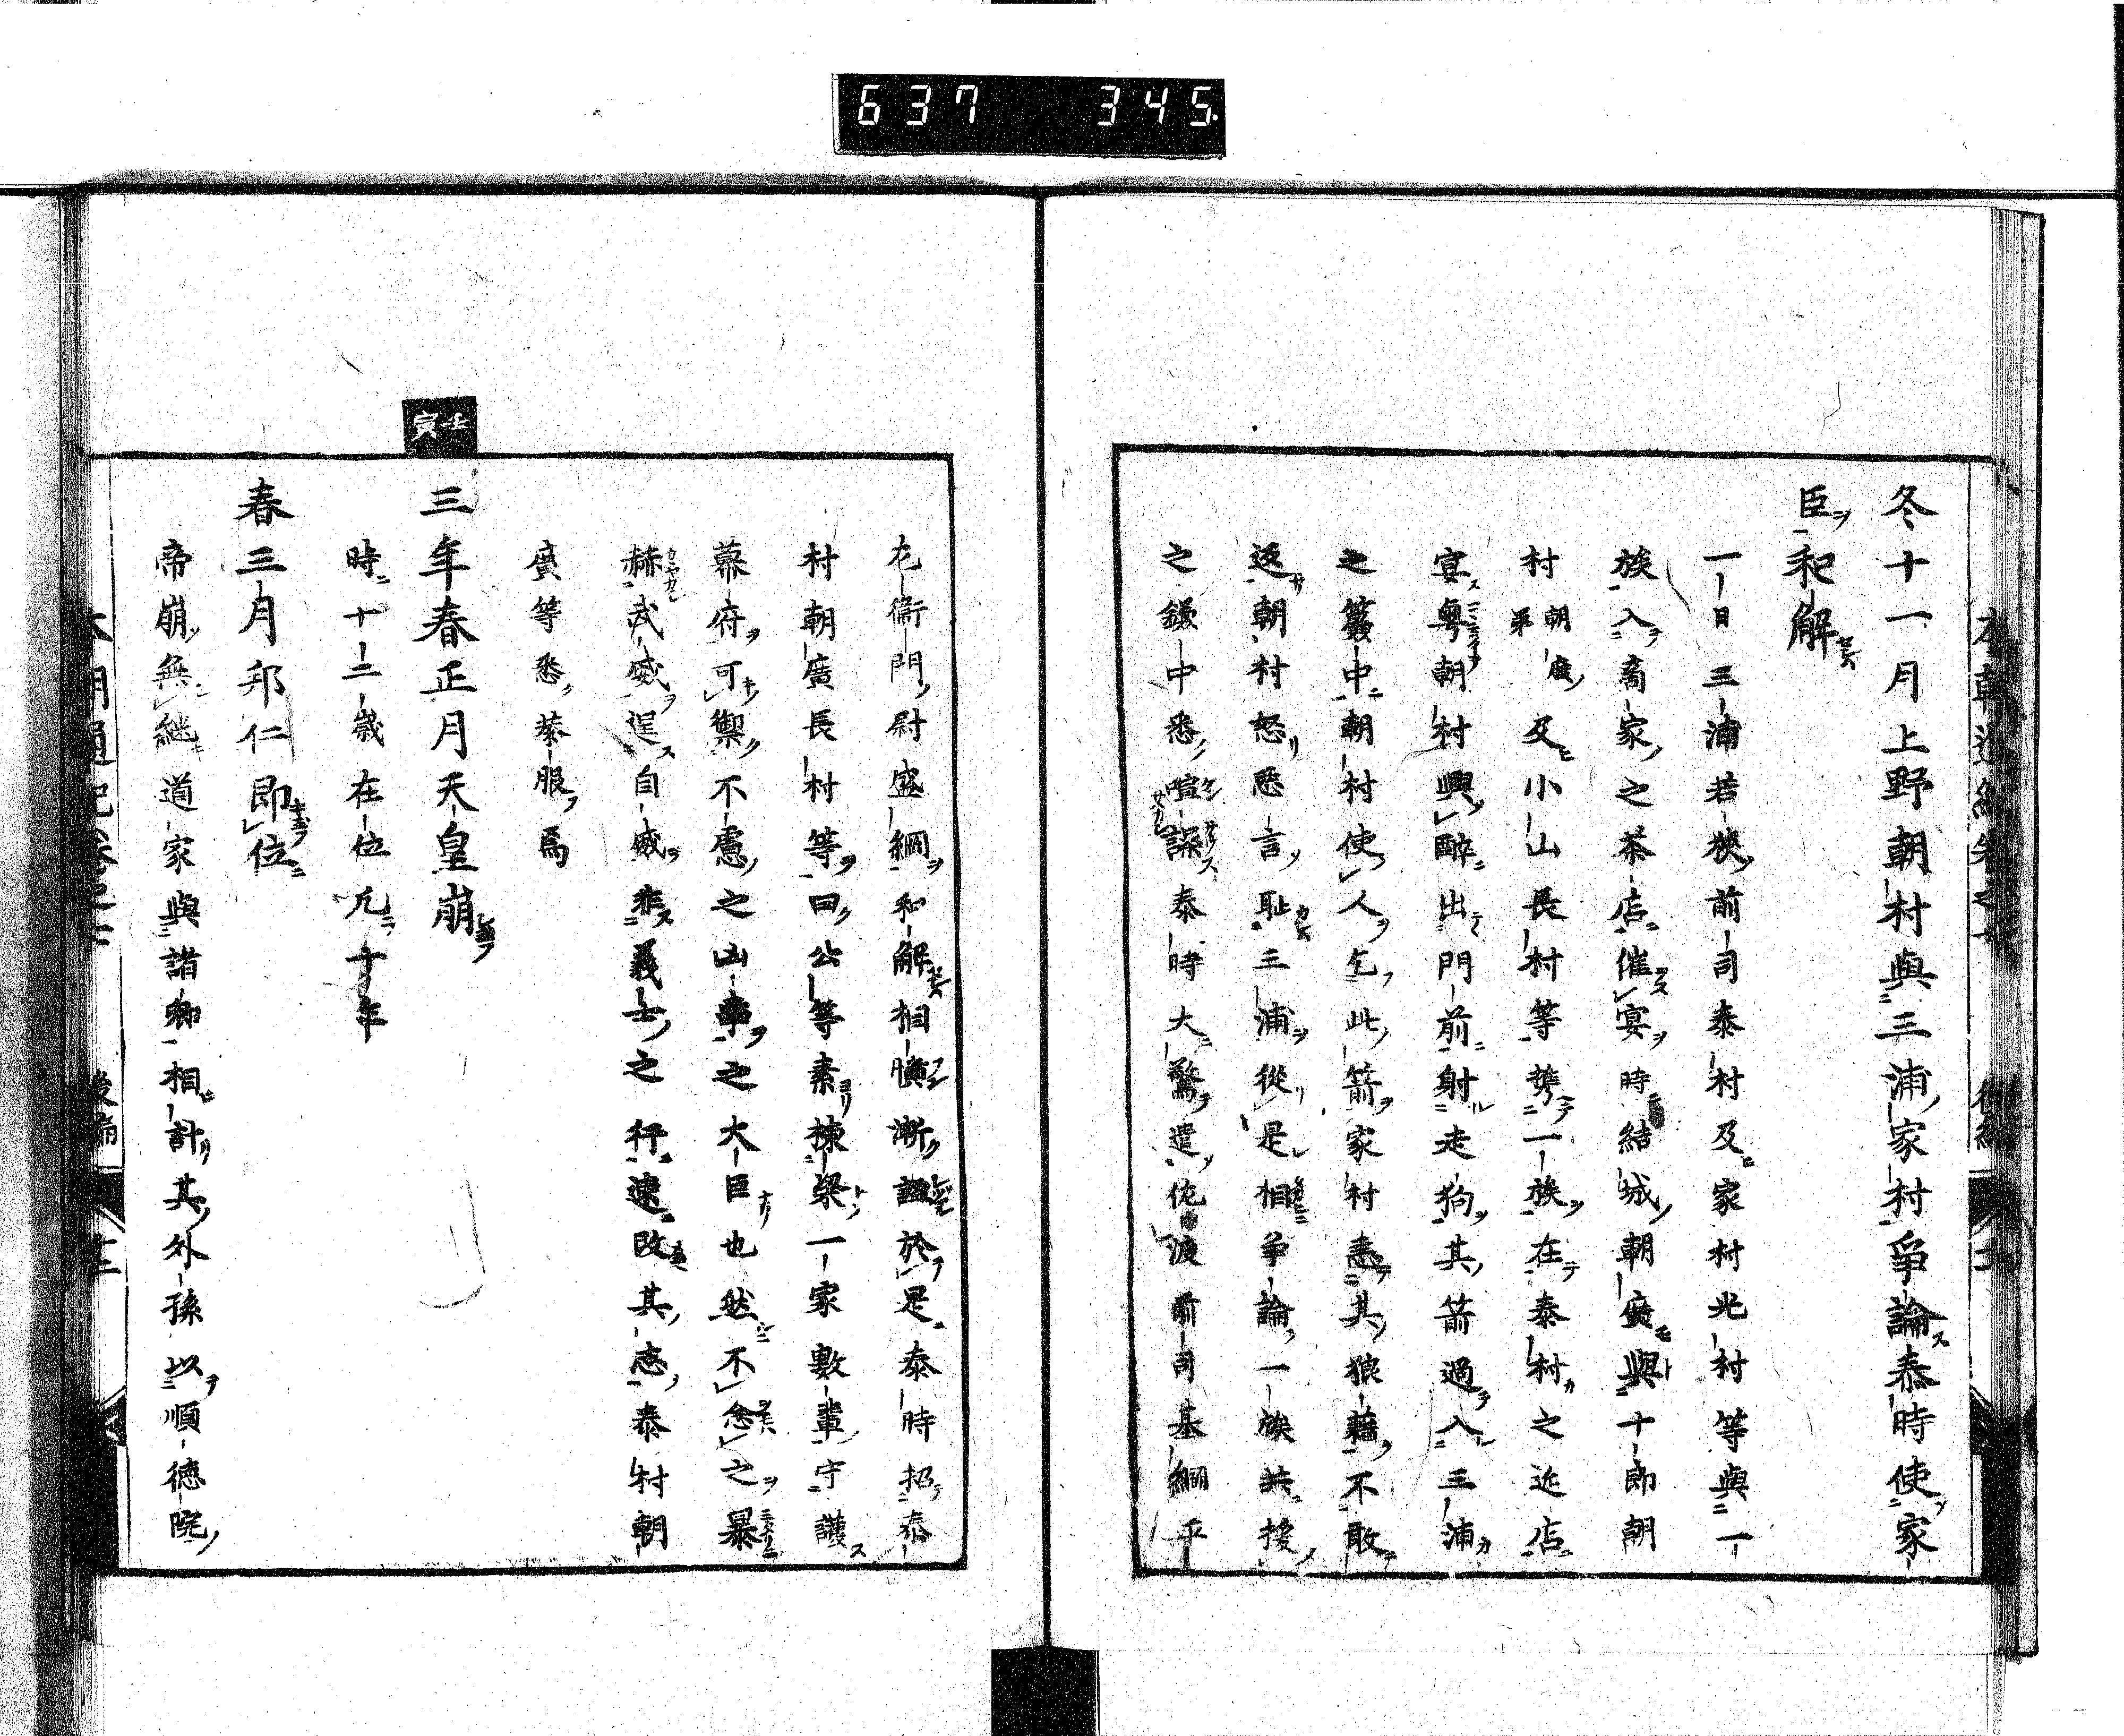 637 345
冬十一月上野朝村與三浦家村爭論泰時使家
臣和解
一日三浦若狹前司泰村及家村光村等與一
族入喬家之茶店催宴時結城朝廣與十郎朝
村朝廣弟及小山長村等携一族在泰村之近店
宴粤朝村興醉出門前射走狗其箭過入三浦
之簑中朝村使人乞此箭家村恚其狼藉不敢
返朝村怒惡言耻三浦從是相爭論一族共援
之鎌中悉喧譟泰時大驚遣佐渡前司基綱平
左衞門尉盛綱和解相憤漸調於是泰時招泰
村朝廣長村等曰公等素棟梁一家數輩守護
幕府可禦不慮之凶事之大臣也然不念之暴
赫武威逞自威非義士之行速改其志泰村朝
廣等悉恭服焉
壬寅
三年春正月天皇崩
時十二歳在位凡十年
春三月邦仁即位
帝崩無継道家與諸卿相計其外孫以順徳院